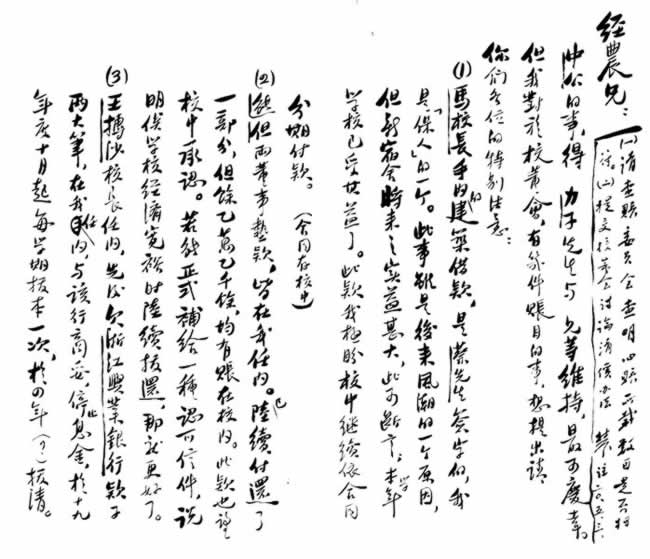 經農兄:
(一)請查賬委員会查明旧賬所載数目是否相
符,(二)提交校董会討論清償办法
仲公的事,得 力子先生与 兄等維持,最可慶幸。
但我對於校董會,有幾件賬目的事,想提出請
你们各位的特别注意:
(1) 馬校長手内的建築借款,是蔡先生簽字的,我
是「保人」的一个。此事雖是後来風潮的一个原因,
但新宿舍時来之实益甚大,此可断言。本学年
学校已受其益了。此款我極盼校中継续依合同
分期付款。(合同在校中)
(2) 但兩董事墊款,皆在我任内。已陸續付還了
一部分,但餘乙萬乙千餘,均有賬在校内。此款也望
校中承認。若能正式補給一種認可信件,説
明俟学校經濟寬裕时陸續拨還,那就更好了。
(3) 王搏沙校長任内,先後欠浙江興業銀行款子
兩大筆,在我任内,与該行商妥,停止息金,於十九
年度十月起每学期拨本一次,於四年(?)拨清。